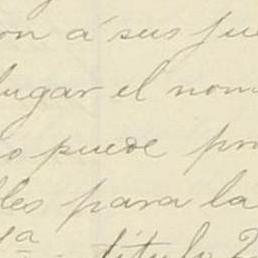 on á sus jue
lugar el nom
o puede pr
les para la
1ª título 2